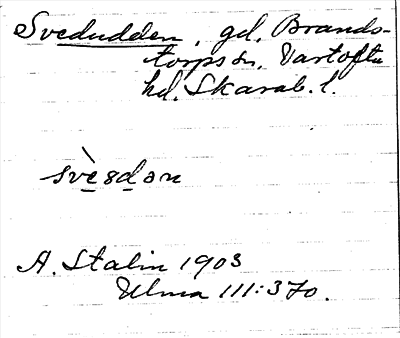 Svedudden, gd, Brands-
torps sn, Vartofta
hd, Skarab. l.
svèsdən
A. Stalin 1903
Ulma 111:370.